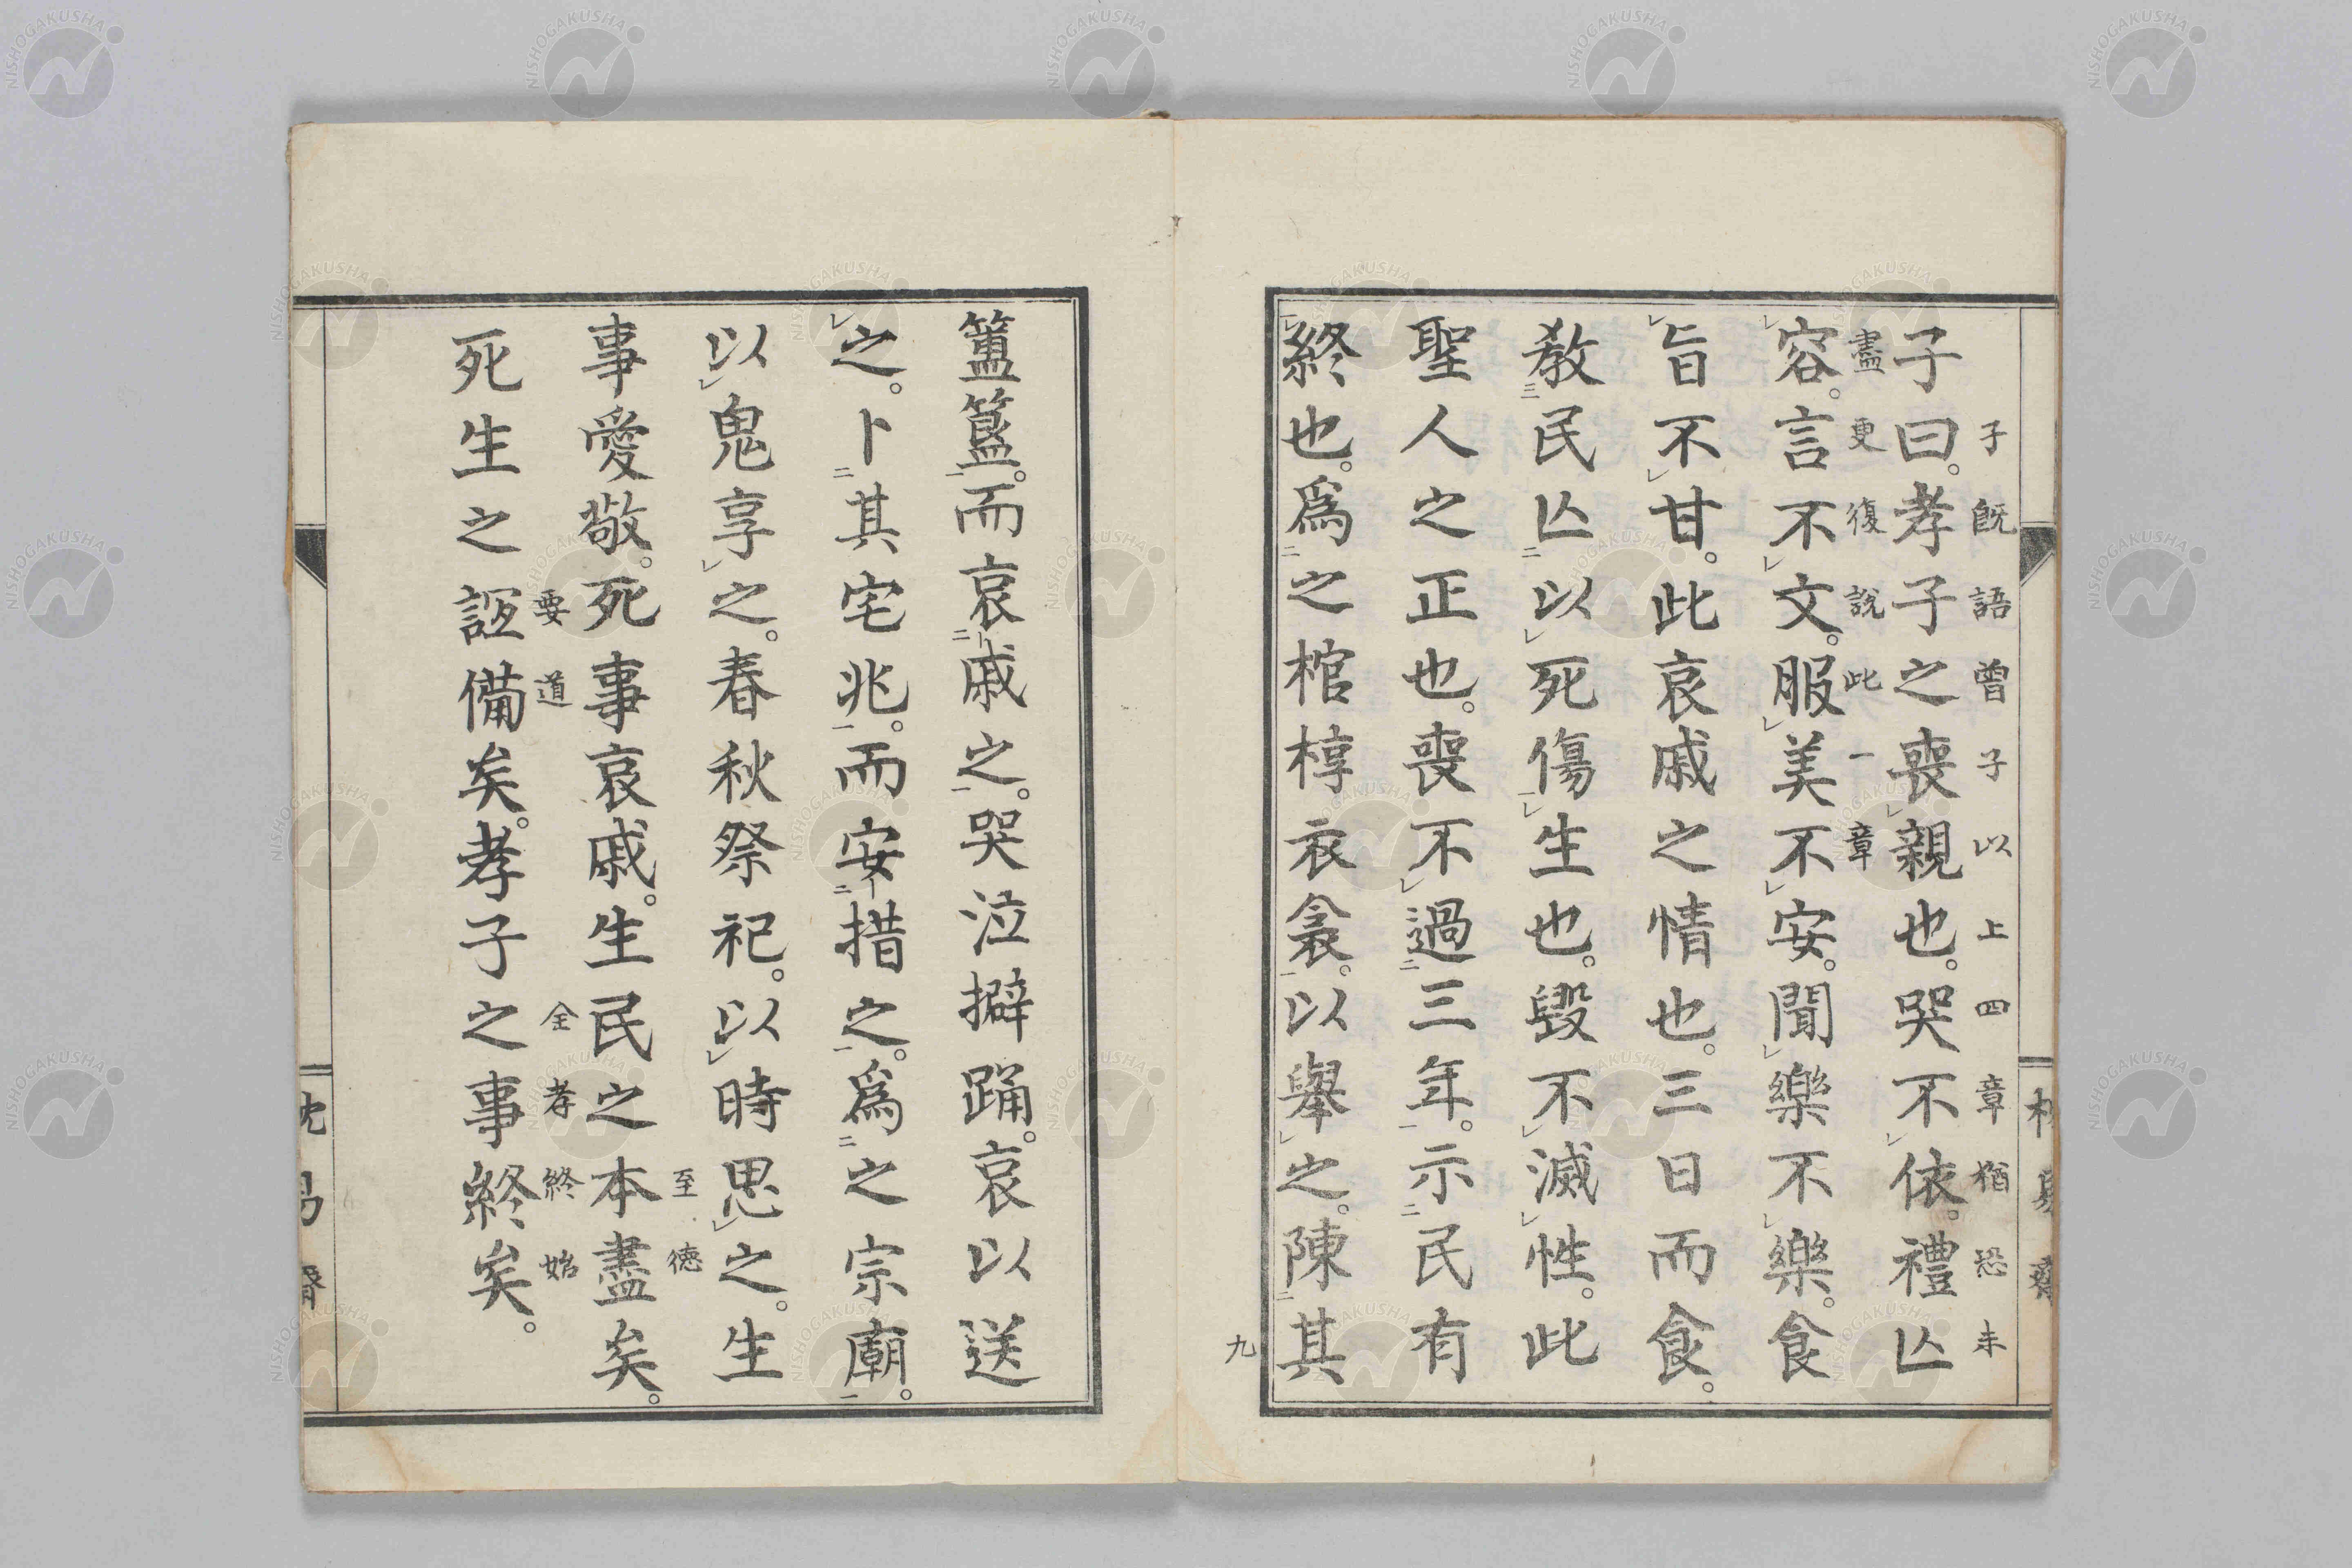 子既語曾子以上四章猶恐未
子曰。孝子之喪親也。哭不依。禮亾
盡更復說此一章
容。言不文。服美不安。聞樂不樂。食
旨不甘。此哀戚之情也。三日而食。
教民亾以死傷生也。毀不滅性。此
聖人之正也。喪不過三年。示民有
終也。爲之棺椁衣衾。以舉之。陳其
九
簠簋。而哀戚之。哭泣擗踊。哀以送
之。卜其宅兆。而安措之。爲之宗廟。
以鬼享之。春秋祭祀。以時思之。生
至德
事愛敬。死事哀戚。生民之本盡矣。
要道 全孝終始
死生之誼備矣。孝子之事終矣。
NISHOGAKUSHA